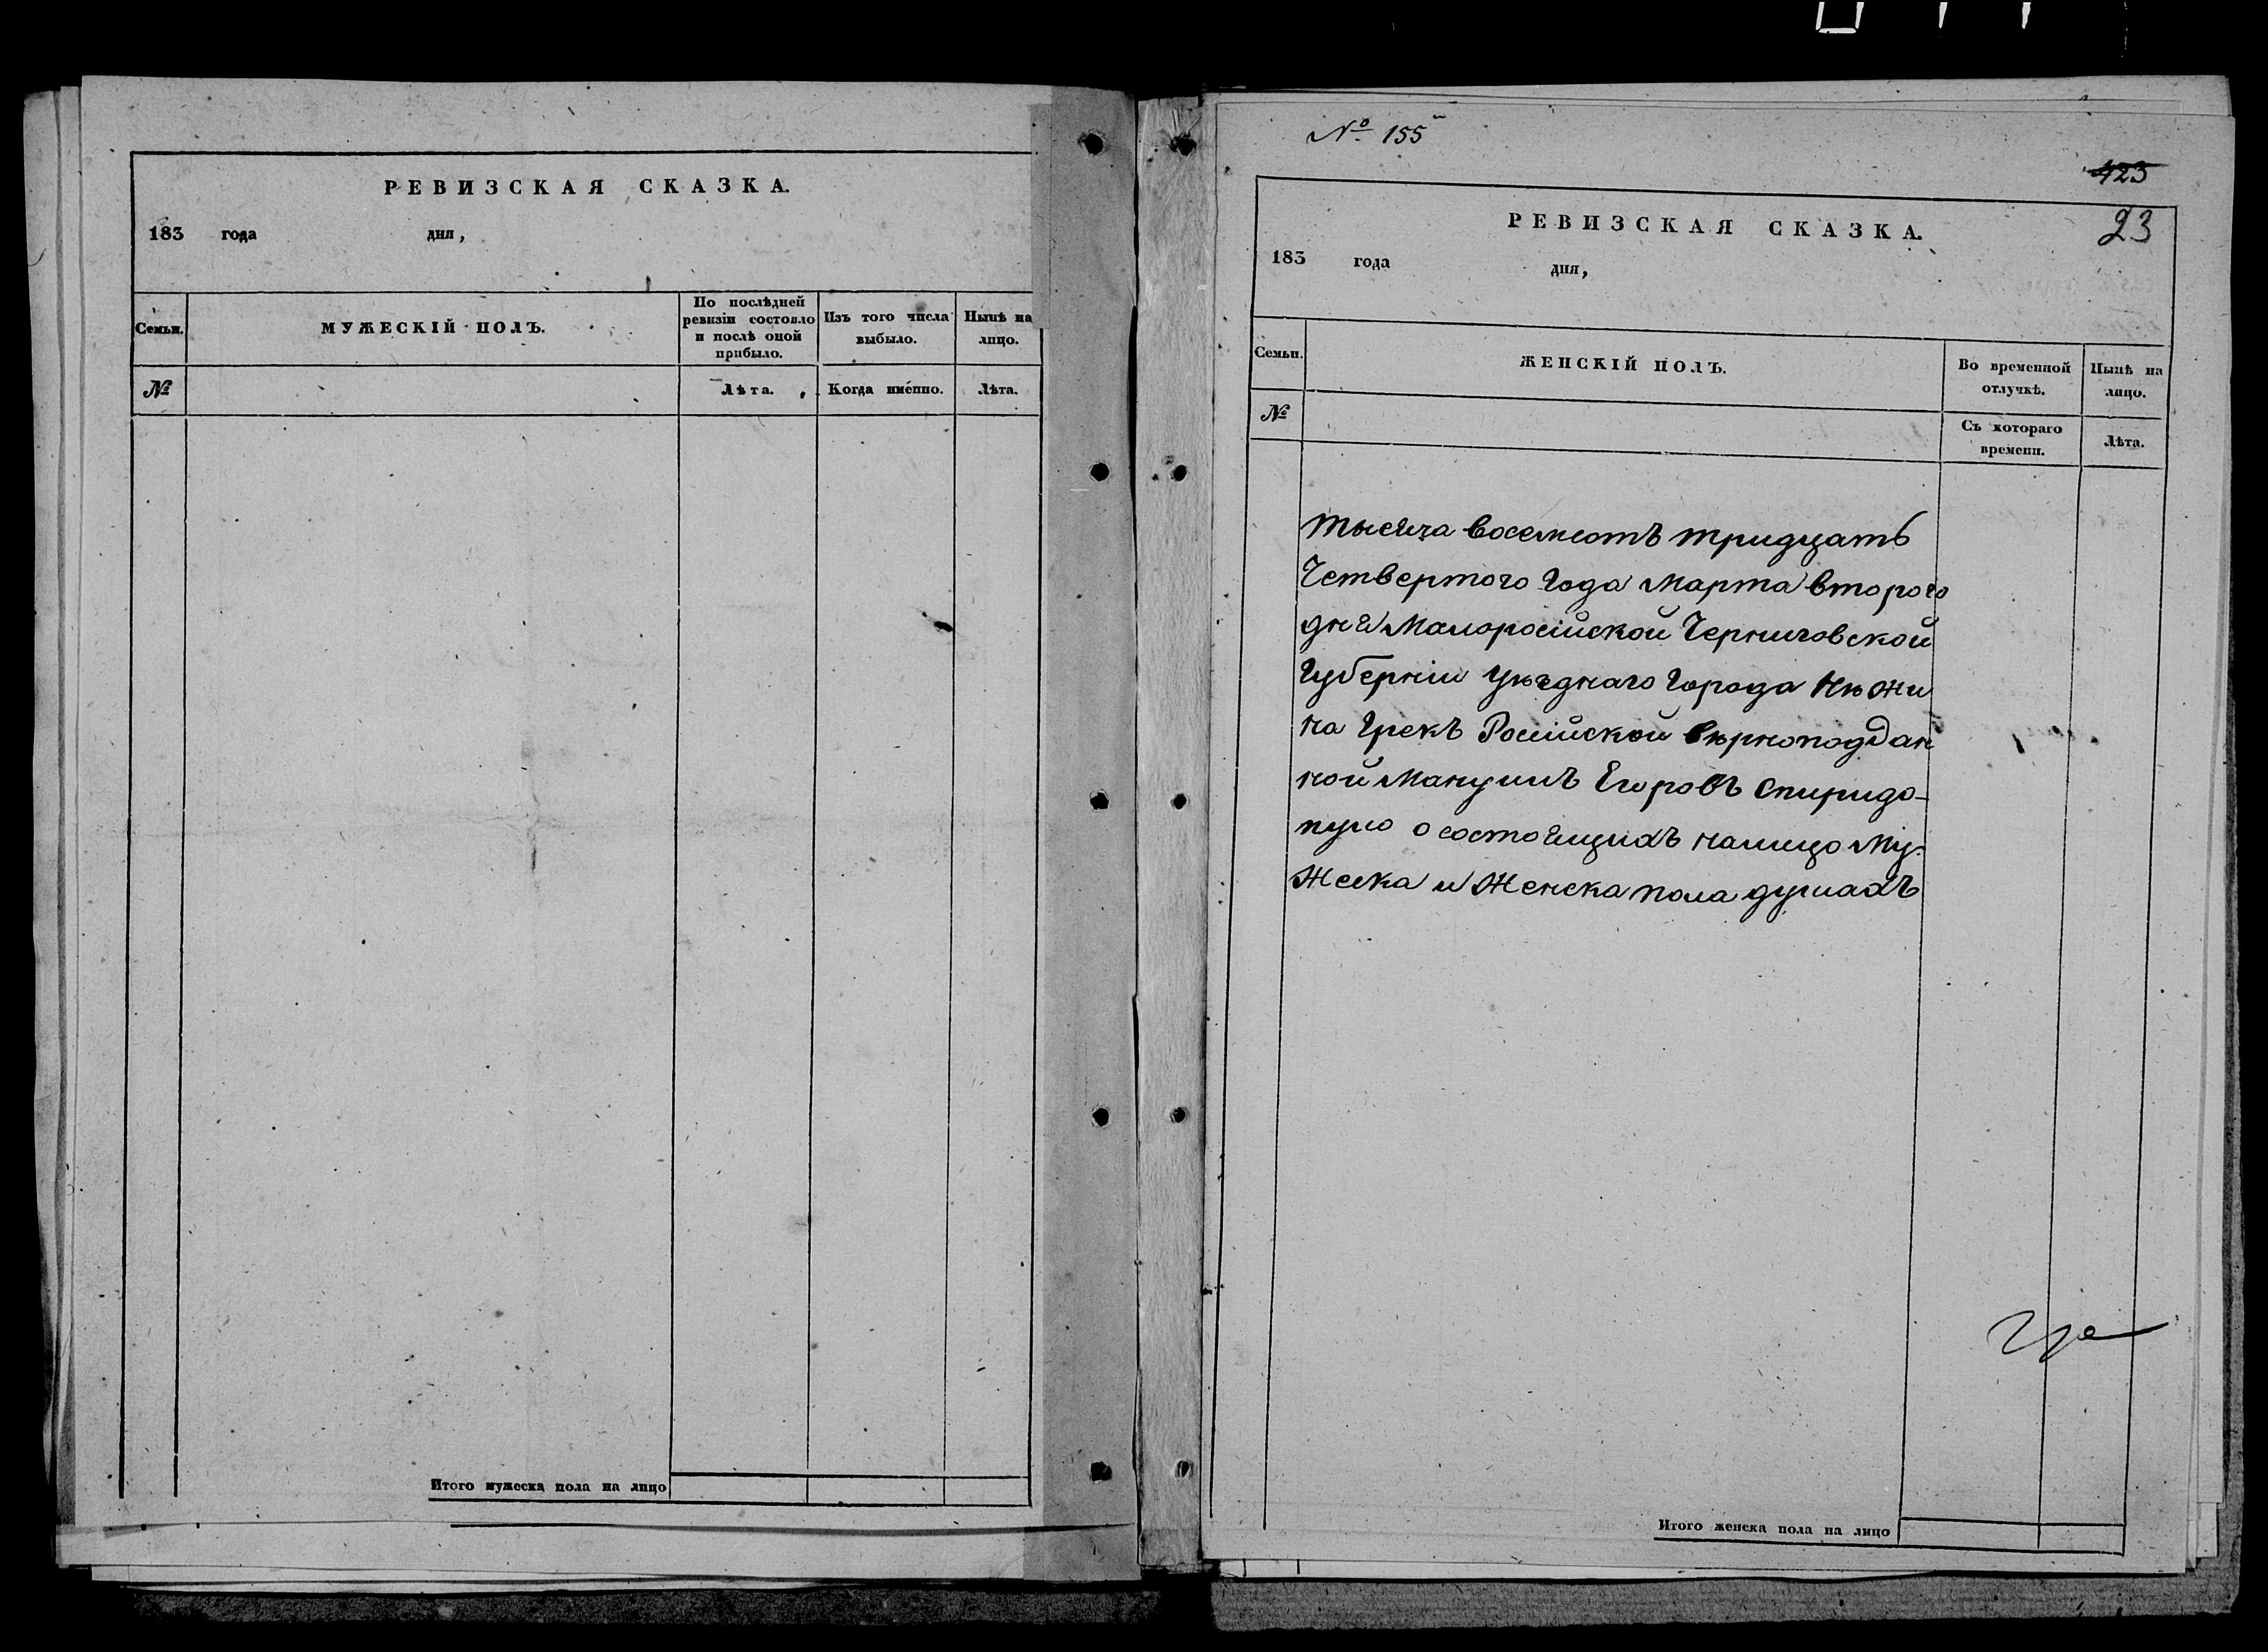 РЕВИЗСКАЯ СКАЗКА.
183 года дня,
Семьи.
МУЖЕСКІЙ ПОЛЪ.
По послѣдней
ревизіи состояло
и послѣ оной
прибыло.
Изъ того числа
выбыло.
Нынѣ на
лицо.
№
Лѣта.
Когда имéнно.
Лѣта.
Итого мужеска пола на лицо
№ 155
423
23
РЕВИЗСКАЯ СКАЗКА.
183 года дня,
Семьи.
ЖЕНСКІЙ ПОЛЪ.
Во временной
отлучкѣ.
Нынѣ на
лицо.
№
Съ котораго
времени.
Лѣта.
тысяча восемсотъ тридцать
Четвертого Года Марта второго
дня Малоросійской Черниговской
Губерніи уѣзднаго Города Нѣжи
на Грекъ Россійской вѣрноподдан
ной Мануилъ Егоровъ Спиридо-
пуло о состоящихъ налицо Му-
жеска и Женска пола душахъ
Итого женска пола на лицо